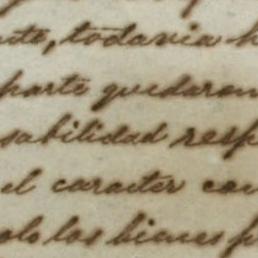 nte, todavia h
parte quedaron
sabilidad resp
el caracter con
olo los bienes p